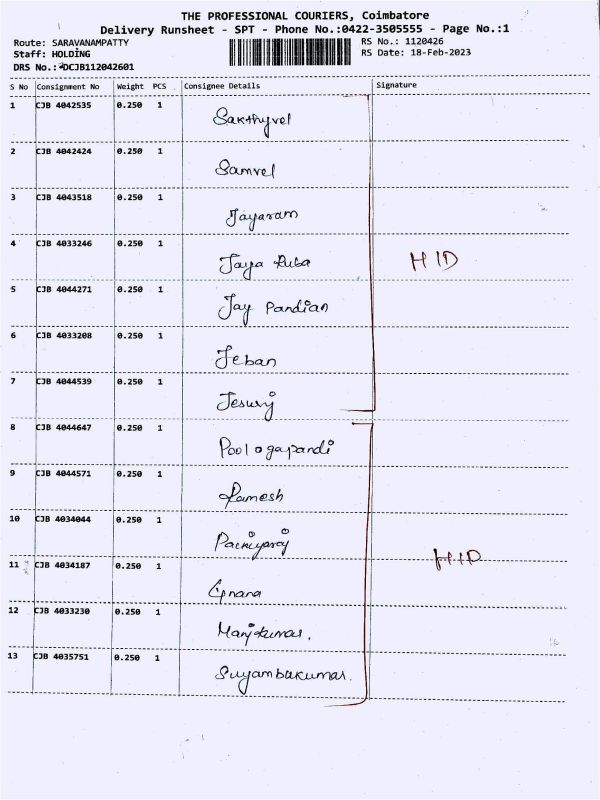 THE PROFESSIONAL COURIERS, Coimbatore
Delivery Runsheet - SPT - Phone No.:0422-3505555 - Page No.:1
Route: SARAVANAMPATTY RS No.: 1120426
Staff: HOLDING RS Date: 18-Feb-2023
DRS No.: DCJB112042601
S No Consignment No Weight PCS Consignee Details Signature
1 CJB 4042535 0.250 1 Sakthyvel
2 CJB 4042424 0.250 1 Samvel
3 CJB 4043518 0.250 1 Jayaram
4 CJB 4033246 0.250 1 Jaya Ruba H/D
5 CJB 4044271 0.250 1 Jay Pandian
6 CJB 4033208 0.250 1 Jeban
7 CJB 4044539 0.250 1 Jesuraj
8 CJB 4044647 0.250 1 Poologapandi
9 CJB 4044571 0.250 1 Ramesh
10 CJB 4034044 0.250 1
11 CJB 4034187 0.250 1 Gnana H/D
12 CJB 4033230 0.250 1 Manjkumar.
13 CJB 4035751 0.250 1 Suyambakumar.